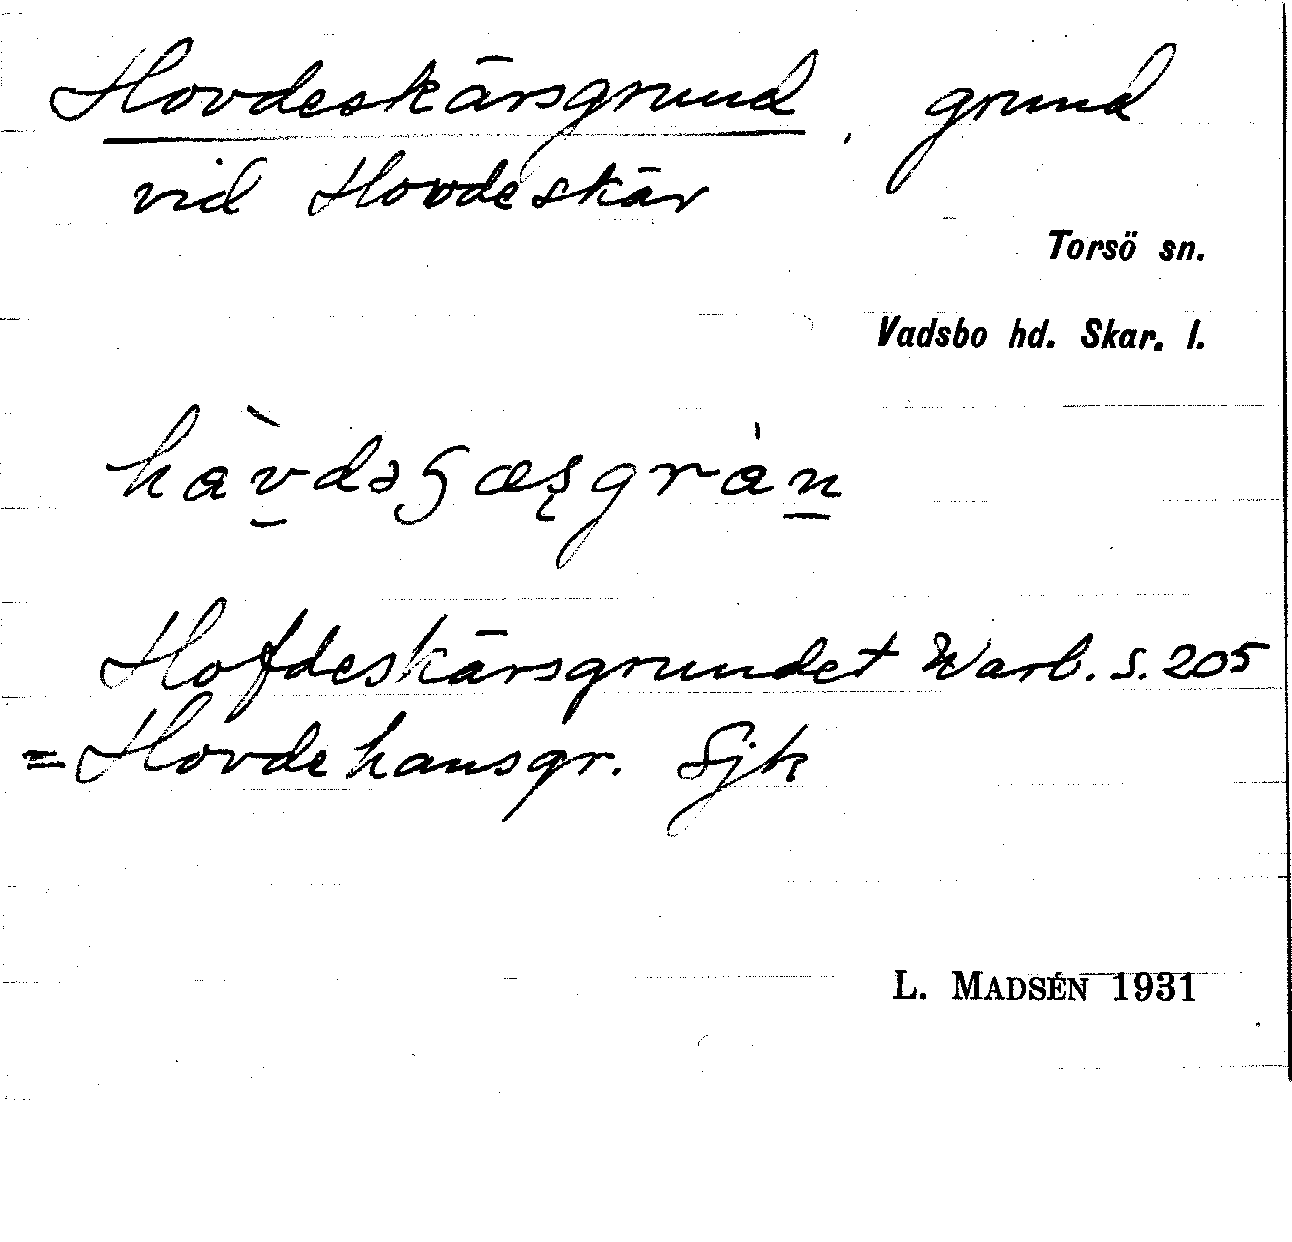 Hovdeskärsgrund, grund
vid Hovdeskär
Torsö sn.
Vadsbo hd. Skar. l.
hàv̱dəɧæʂgrȧṉ
Hofdeskärsgrundet Warb. S. 205
= Hovdehansgr. Sjk
L. MADSÉN 1931